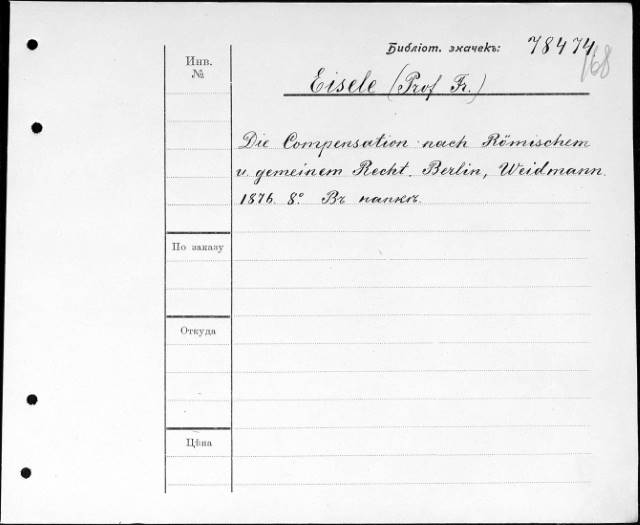 Библіот. значекъ: 78474
168
Инв.
№
Eisele (Prof Fr.)
Die Compensation nach Römischem
u. gemeinem Recht. Berlin, Weidmann.
1876. 8°. Въ папкѣ.
По заказу
Откуда
Цѣна